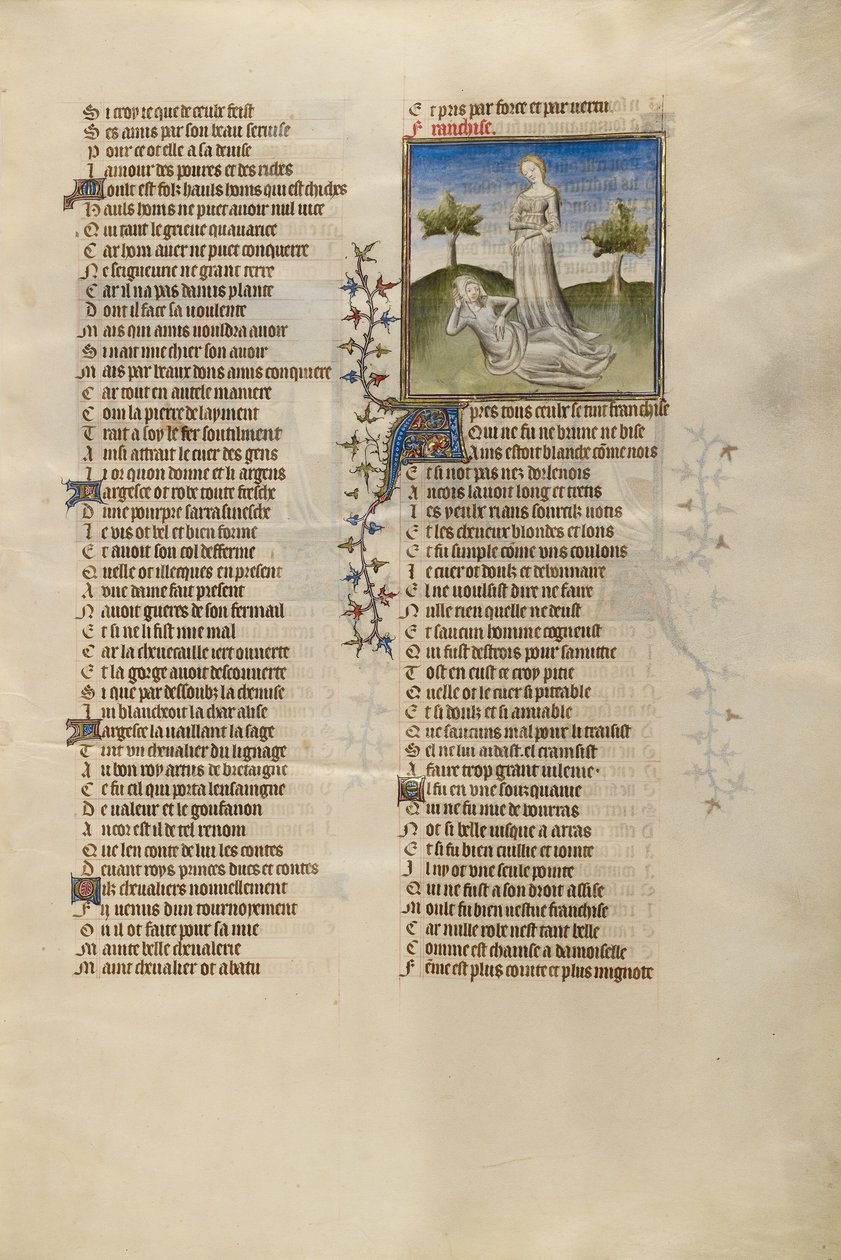 Si croy ie que de ceulx feist
Ses amis par son beau seruise
Pour ce ot elle a sa deuise
Lamour des poures et des riches
Moult est folz haulx homs qui est chiches
Haulx homs ne puet auoir nul uice
Qui tant le grieue quauarice
Car hom auer ne puet conquerre
Ne seigneurie ne grant terre
Car il na pas damis plante
Dont il face sa uoulente
Mais qui amis uouldra auoir
Si nait mie chier son auoir
Mais par beaux dons amis conquiere
Car tout en autele maniere
Com la pierre de layment
Trait a soy le fer soutilment
Ainsi attrait le cuer des gens
Li or quon donne et li argens
Largesce ot robe toute fresche
Dune pourpre sarrasinesche
Le vis ot bel et bien forme
Et auoit son col defferme
Quelle ot illecques en present
A vne dame fait present
Nauoit gueres de son fermail
Et si ne li fist mie mal
Car la cheuecaille iert ouuerte
Et la gorge auoit descouuerte
Si que par dessoubz la chemise
Lui blancheoit la char alise
Largesce la uaillant la sage
Tint vn cheualier du lignage
Au bon roy artus de bretaigne
Ce fu cil qui porta lenseingne
De ualeur et le gonfanon
Ancor est il de tel renom
Que len conte de lui les contes
Deuant roys princes ducs et contes
Cilz cheualiers nouuellement
Fu uenus dun tournoyement
Ou il ot faite pour sa mie
Mainte belle cheualerie
Maint cheualier ot abatu
Et pris par force et par uertu
Franchise.
Apres tous ceulx se tint franchise
Qui ne fu ne brune ne bise
Ains estoit blanche cõme nois
Et si not pas nez dorlenois
Ancois lauoit long et tretis
Les yeulx rians sourcilz uotis
Et les cheueux blondes et lons
Et fu simple cõme vns coulons
Le cuer ot doulz et debonnaire
El ne uoulsist dire ne faire
Nulle rien quelle ne deust
Et saucun homme cogneust
Qui fust destrois pour samitie
Tost en eust ce croy pitie
Quelle ot le cuer si piteable
Et si doulz et si amiable
Que saucuns mal pour li traisist
Sel ne lui aidast. el crainsist
A faire trop grant uilenie.
El fu en vne sourquanie
Qui ne fu mie de bourras
Not si belle iusque a arras
Et si fu bien cuillie et iointe
Il ny ot vne seule pointe
Qui ne fust a son droit assise
Moult fu bien uestue franchise
Car nulle robe nest tant belle
Comme est chainse a damoiselle
Fẽme est plus cointe et plus mignote